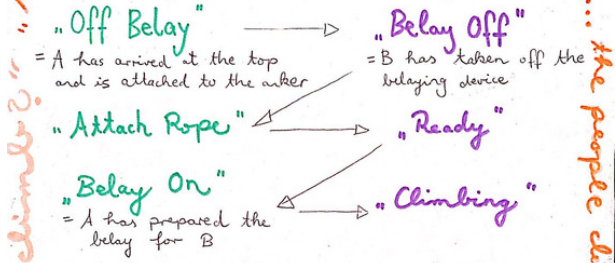 „Off Belay"
= A has arrived at the top
and is attached to the anker
„Belay Off"
= B has taken off the
belaying device
„Attach Rope"
„Ready"
„Belay On"
= A has prepared the
belay for B
„Climbing"
... the people cli
climbs?"